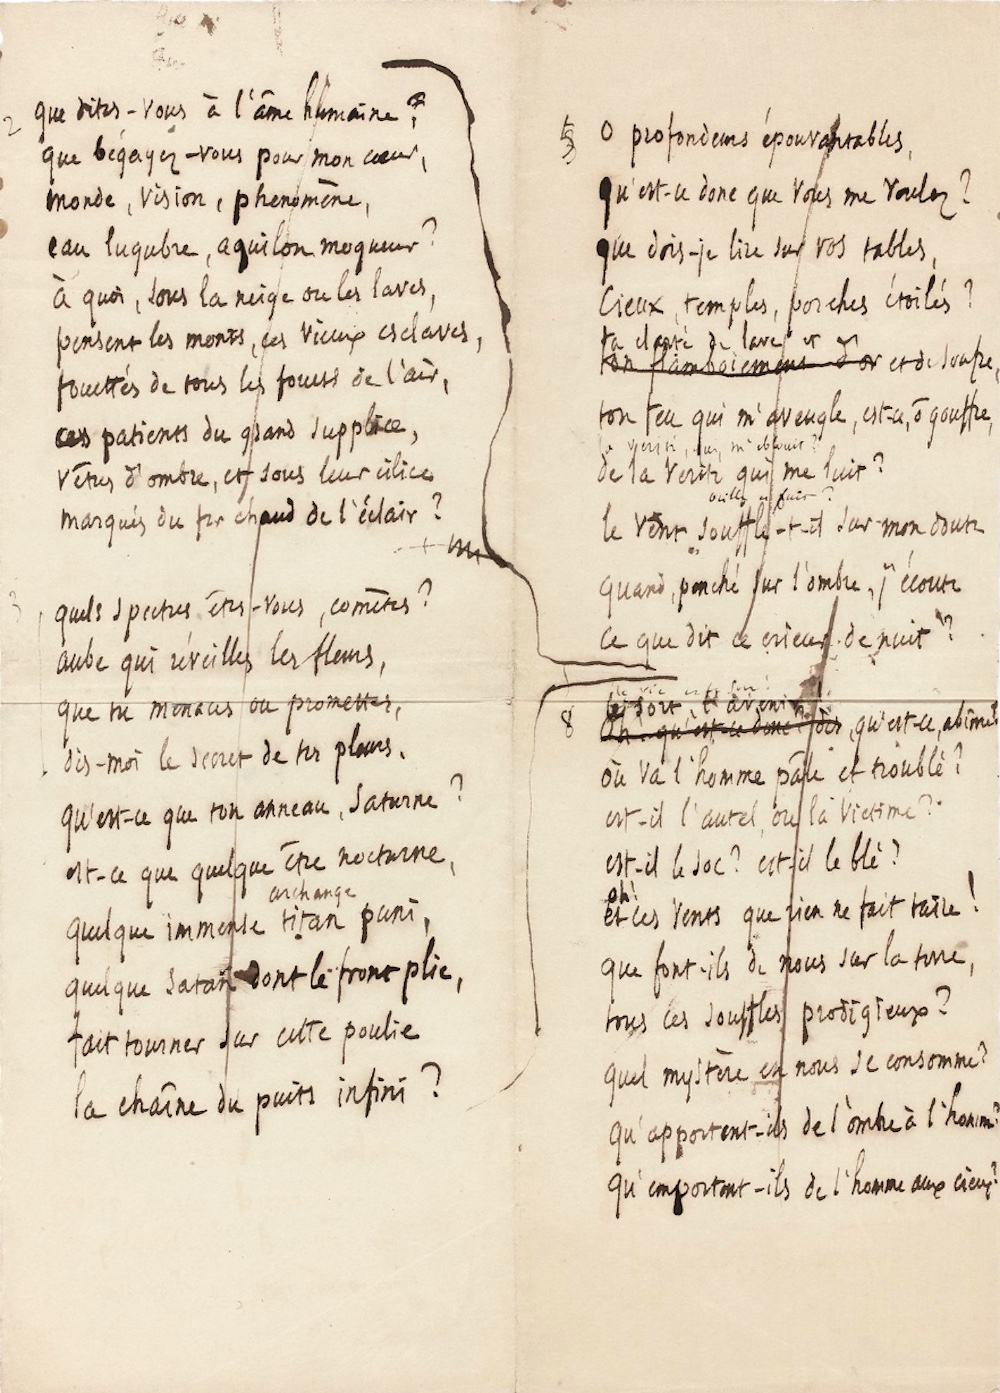 2
que dites-vous à l'âme humaine ?
que bégayez-vous pour mon cœur,
monde, vision, phénomène,
eau lugubre, aquilon moqueur ?
à quoi, sous la neige ou les laves,
pensent les monts, ces vieux esclaves,
fouettés de tous les fouets de l'air,
ces patients du grand supplice,
vêtus d'ombre, et sous leur cilice
marqués du fer chaud de l'éclair ?
3
quels spectres êtes-vous, comètes ?
aube qui réveilles les fleurs,
que tu menaces ou promettes,
dis-moi le secret de tes pleurs.
qu'est-ce que ton anneau, Saturne ?
est-ce que quelque être nocturne,
archange
quelque immense titan puni,
quelque Satan dont le front plie,
fait tourner sur cette poulie
la chaîne du puits infini ?
5
O profondeurs épouvantables,
qu'est-ce donc que vous me voulez ?
que dois-je lire sur vos tables,
Cieux, temples, porches étoilés ?
ta clarté de lave et
ton flamboiement d'or et de soufre,
ton feu qui m'aveugle, est-ce, ô gouffre,
la vérité, qui m'éblouit ?
de la vérité qui me luit ?
le vent souffle-t-il sur mon doute
quand, penché sur l'ombre, j'écoute
ce que dit ce crieur de nuit ?
8
le sort, l'avenir
Oh ! qu'est-ce donc , qu'est-ce, abîme ?
où va l'homme pâle et troublé ?
est-il l'autel, ou la victime ?
est-il le soc ? est-il le blé ?
oh !
et ces vents que rien ne fait taire !
que font-ils de nous sur la terre,
tous ces souffles prodigieux ?
quel mystère en nous se consomme ?
qu'apportent-ils de l'ombre à l'homme ?
qu'emportent-ils de l'homme aux cieux ?